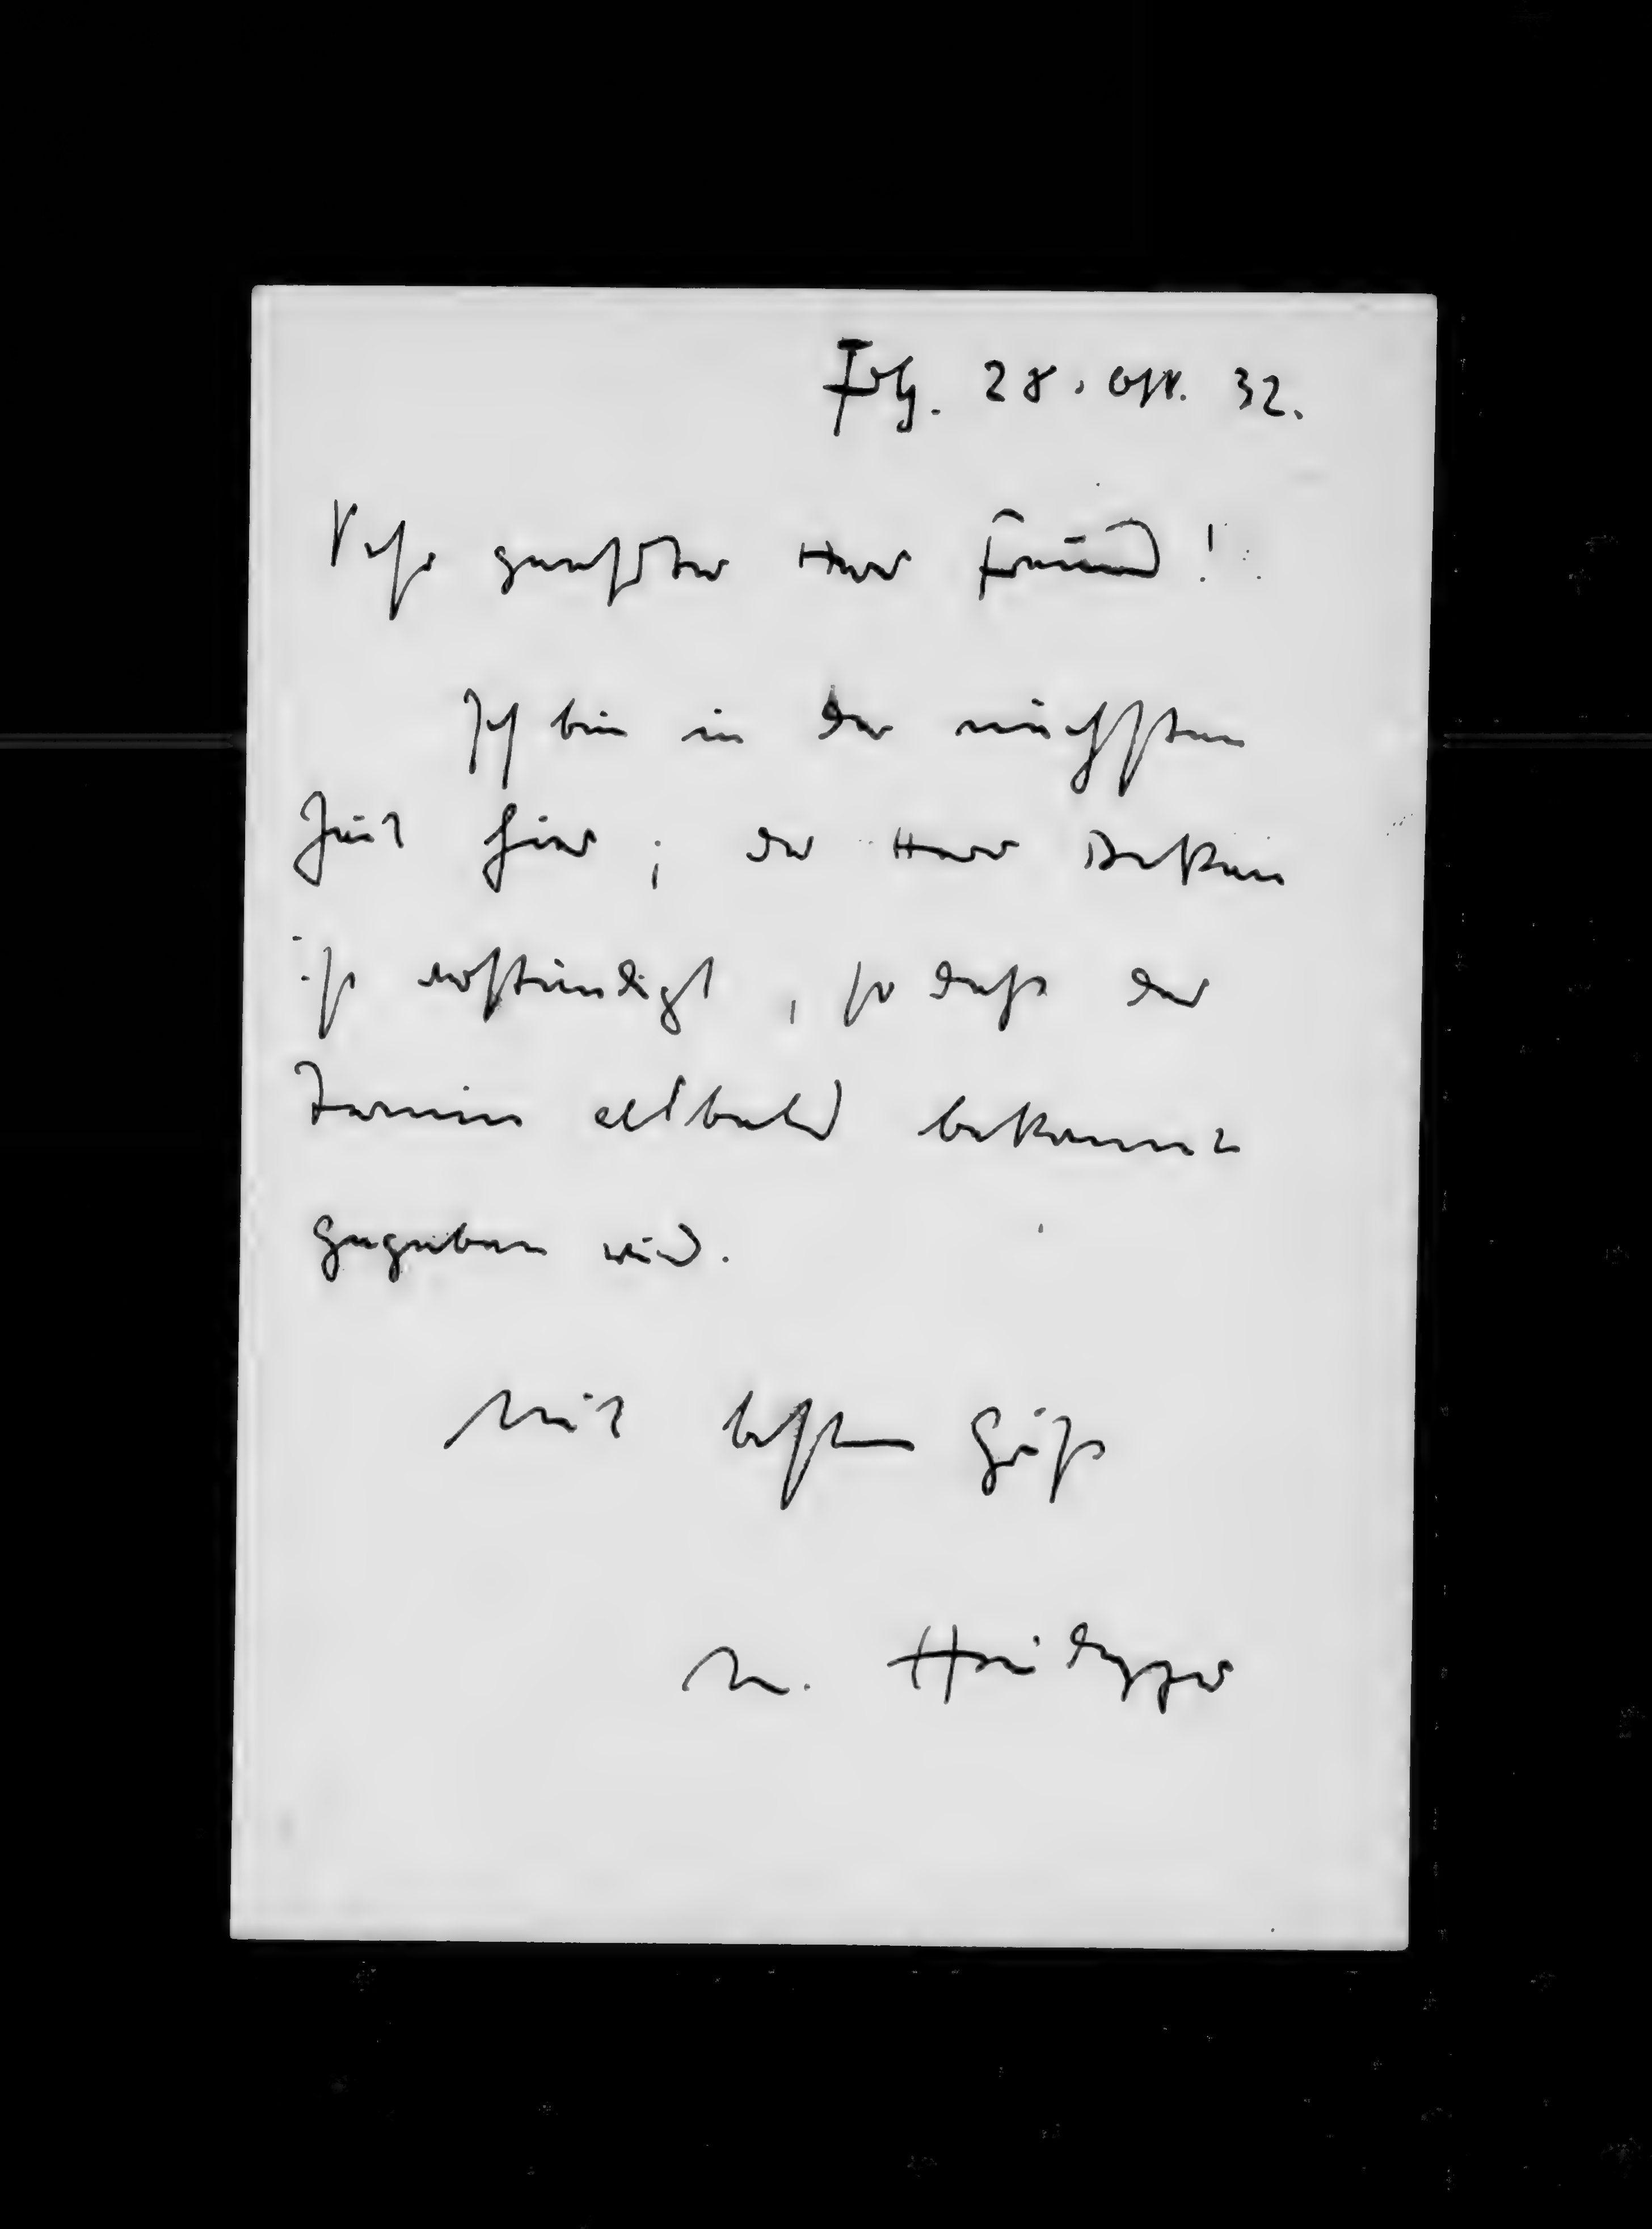 Frbg. 28. Okt. 32.
Sehr geehrter Herr Freund!
Ich bin in der nächsten
Zeit hier; der Herr Dekan
ist verständigt, so daß der
Termin alsbald bekannt
gegeben wird.
Mit bestem Gruß
M. Heidegger